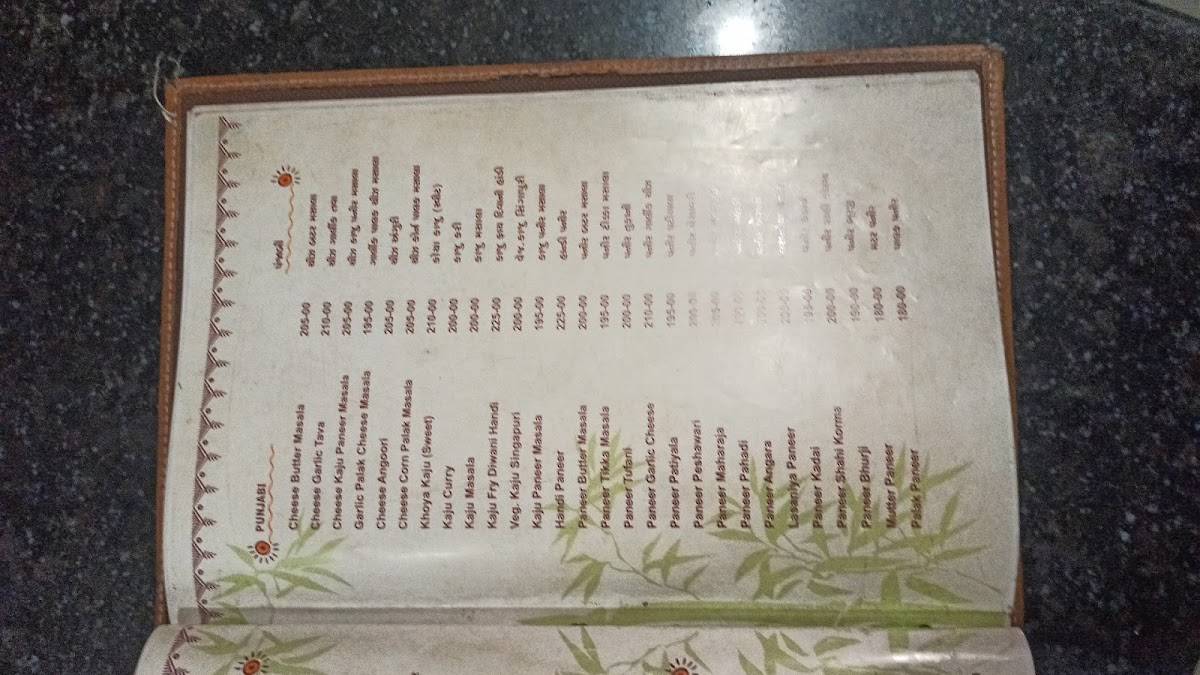 PUNJABI પંજાબી
Cheese Butter Masala 205-00 ચીઝ બટર મસાલા
Cheese Garlic Tava 210-00 ચીઝ ગાર્લીક તવા
Cheese Kaju Paneer Masala 205-00 ચીઝ કાજુ પનીર મસાલા
Garlic Palak Cheese Masala 195-00 ગાર્લીક પાલક ચીઝ મસાલા
Cheese Angoori 205-00 ચીઝ અંગુરી
Cheese Corn Palak Masala 205-00 ચીઝ કોર્ન પાલક મસાલા
Khoya Kaju (Sweet) 210-00 ખોયા કાજુ (સ્વીટ)
Kaju Curry 200-00 કાજુ કરી
Kaju Masala 200-00 કાજુ મસાલા
Kaju Fry Diwani Handi 225-00 કાજુ ફ્રાય દિવાની હાંડી
Veg. Kaju Singapuri 200-00 વેજ. કાજુ સિંગાપુરી
Kaju Paneer Masala 195-00 કાજુ પનીર મસાલા
Handi Paneer 225-00 હાંડી પનીર
Paneer Butter Masala 200-00 પનીર બટર મસાલા
Paneer Tikka Masala 195-00 પનીર ટીક્કા મસાલા
Paneer Tufani 200-00 પનીર તુફાની
Paneer Garlic Cheese 210-00 પનીર ગાર્લીક ચીઝ
Paneer Patiyala 195-00 પનીર પટીયાલા
Paneer Peshawari
Paneer Maharaja
Paneer Pahadi
Paneer Angara
Lasaniya Paneer
Paneer Kadai
Paneer Shahi Korma 200-00
Paneer Bhurji 190-00 પનીર ભુરજી
Mutter Paneer 180-00 મટર પનીર
Palak Paneer 180-00 પાલક પનીર